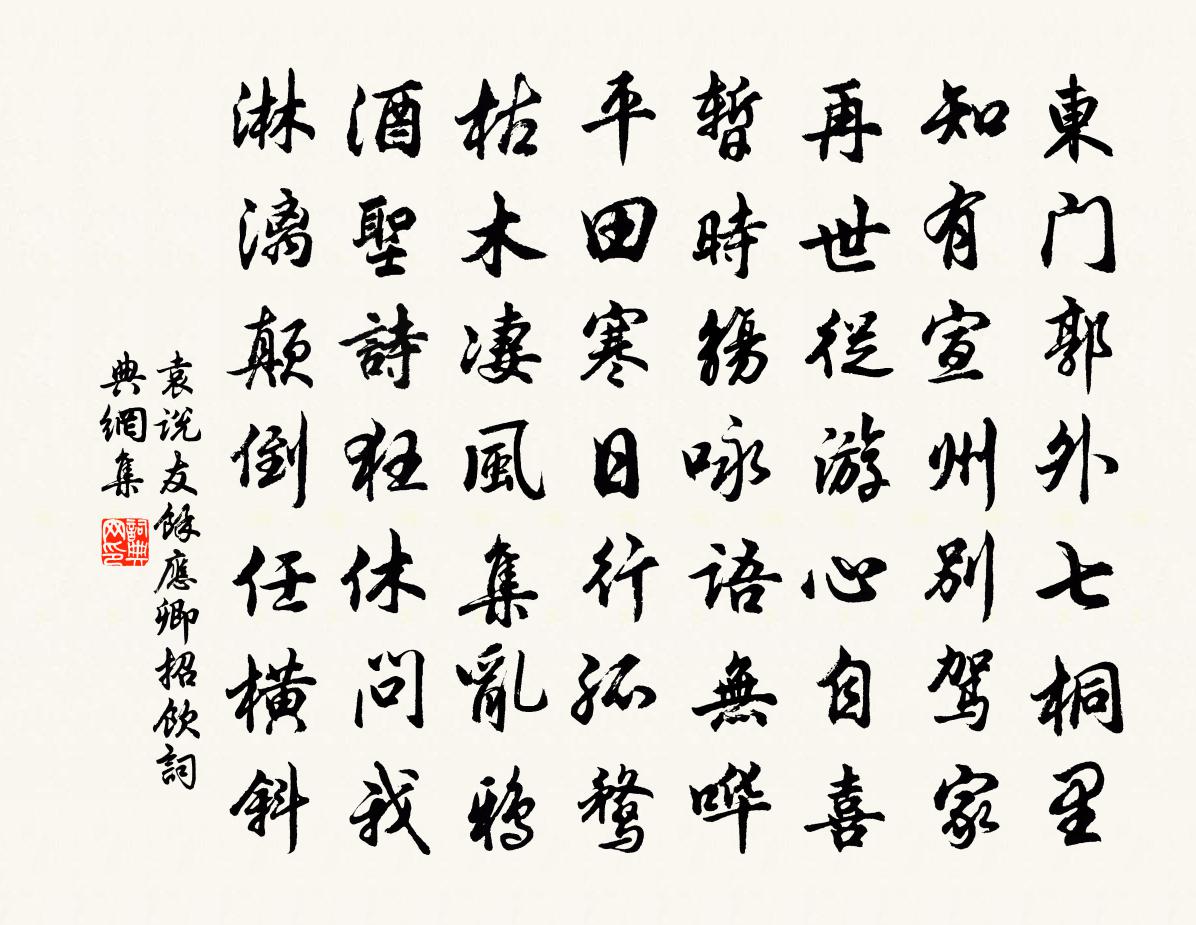 東门郭外七桐里
知有宣州别駕家
再世從游心自喜
暫時觴咏語無哗
平田寒日行孤鶩
枯木凄風集亂鴉
酒聖詩狂休问我
淋漓顛倒任橫斜
袁说友餘應卿招飲詞
典網集
詞典
网印